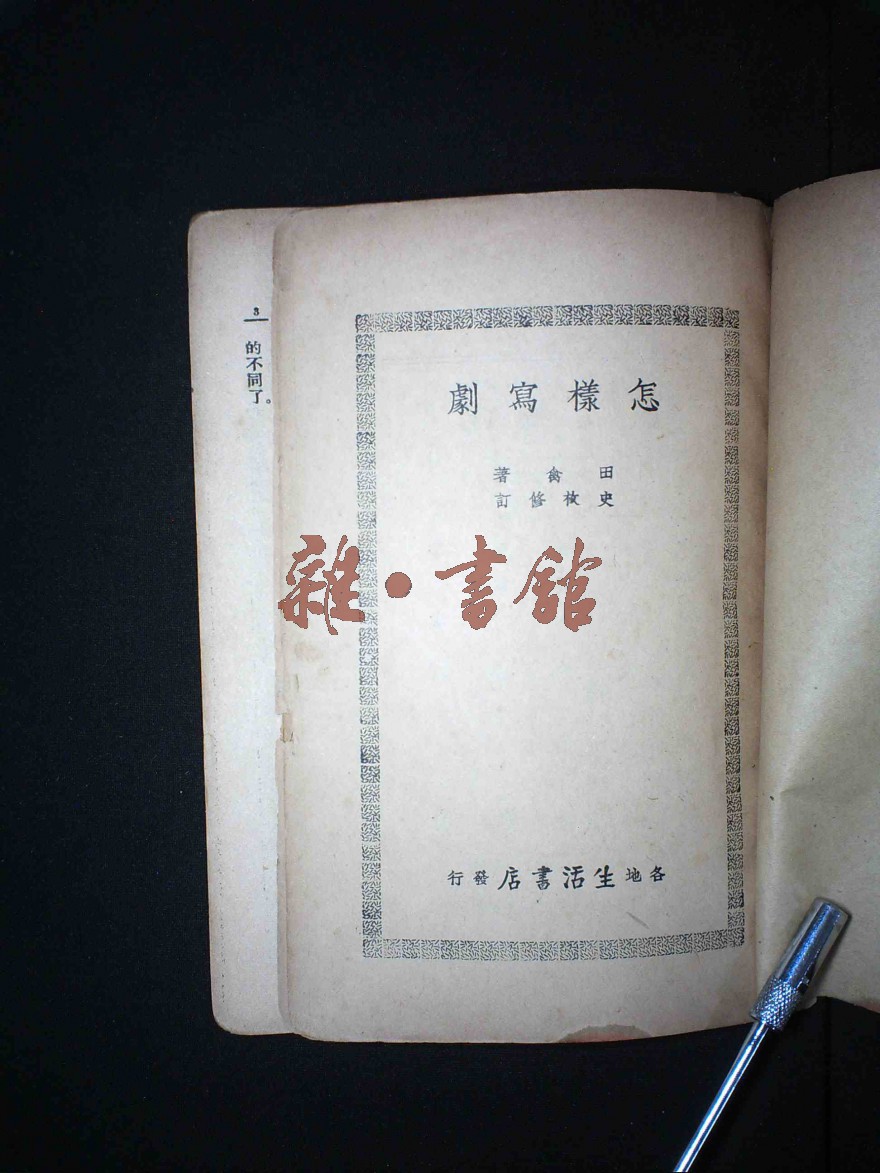 怎樣寫劇
田禽著
史枚修訂
雜·書館
各地生活書店發行
3
的不同了。